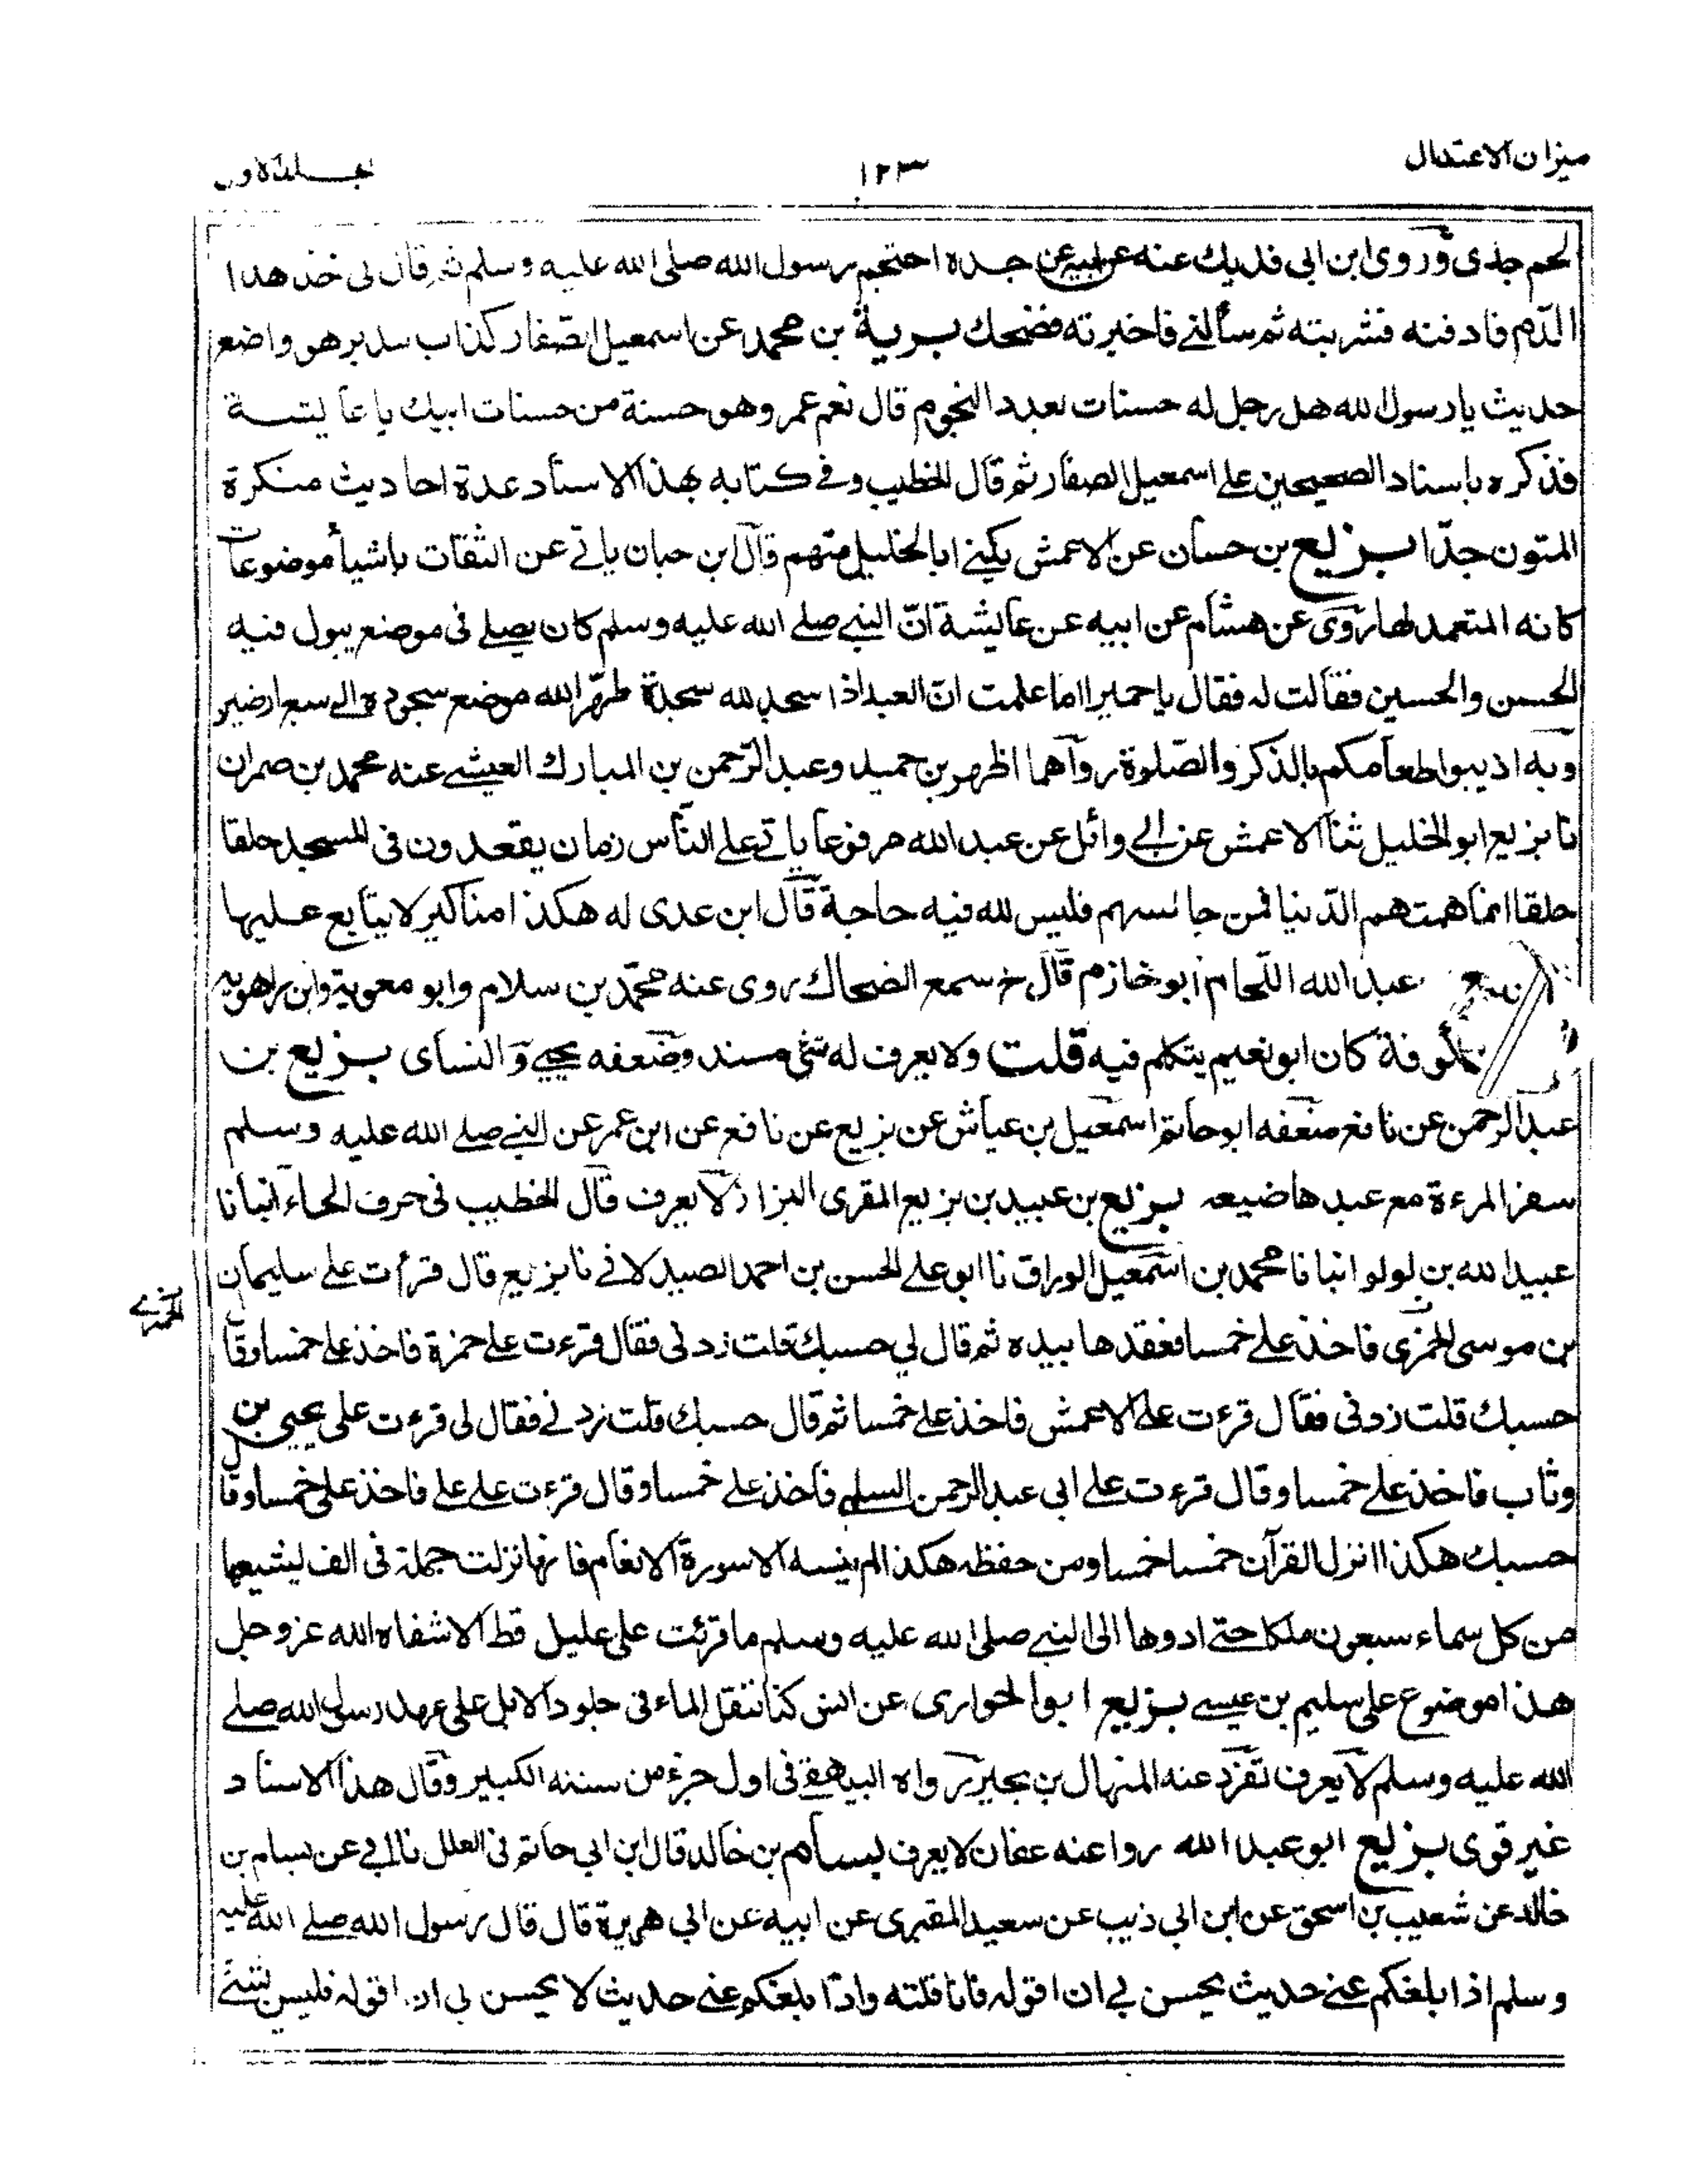 ميزان الاعتدال
١٢٣
جلد الاول
لحم جذى وروى ابن ابى فديك عنه عن ابيه عن جده احتجم رسول الله صلى الله عليه وسلم ثم قال لى خذ هذا
الدم فادفنه فشربته ثم سألنے فاخبرته فضحك برية بن محمد عن اسمعيل الصفار كذاب مدبر هو واضع
حديث يا رسول الله هل رجل له حسنات بعدد النجوم قال نعم عمر وهو حسنة من حسنات ابيك يا عايشة
فذكره باسناد الصحيحين على اسمعيل الصفار ثم قال الخطيب وفے كتابه بهذا الاسناد عدة احاديث منكرة
المتون جدّا بزيع بن حسان عن الاعمش يكنے ابا الخليل متهم قال ابن حبان ياتے عن الثقات باشيأ موضوعات
كانه المتعمد لها روى عن هشام عن ابيه عن عايشة انّ النبے صلے الله عليه وسلم كان يصلے فى موضع يبول فيه
الحسن والحسين فقالت له فقال يا حميرا اما علمت انّ العبد اذا سجد لله سجدة طهّر الله موضع سجوده الے سبع ارضين
وبه اذيبوا طعامكم بالذكر والصّلوة رواهما اظهر بن حميد وعبد الرّحمن بن المبارك العيشے عنه محمد بن صمران
نا بزيع ابو الخليل ثنا الاعمش عن ابے وائل عن عبد الله مرفوعا ياتے على النّاس زمان يقعدون فى المسجد حلقا
حلقا انما همتهم الدّنيا فمن جالسهم فليس لله فيه حاجة قال ابن عدى له هكذا مناكير لا يتابع عليها
عبد الله اللّحام ابو خازم قال خ سمع الضحاك روى عنه محمد بن سلام وابو معوية وابن راهويه
بكوفة كان ابو نعيم يتكلم فيه قلت ولا يعرف له شئ مسند وضعفه يحيے والنساى بزيع بن
عبد الرحمن عن نافع ضعفه ابو حاتم اسمعيل بن عياش عن بزيع عن نافع عن ابن عمر عن النبے صلے الله عليه وسلم
سفر المرءة مع عبدها ضيعه بزيع بن عبيد بن بزيع المقرى البزاز لا يعرف قال الخطيب فى حرف الحاء انبانا
عبيد الله بن لولو انبانا محمد بن اسمعيل الوراق نا ابو على الحسن بن احمد الصيدلانے نا بزيع قال قرأت علے سليمان
بن موسى الحمزى فاخذ علے خمسا فعقدها بيده ثم قال لي حسبك قلت زدنى فقال قرءت علے حمزة فاخذ علے خمسا وقال
حسبك قلت زدنى فقال قرءت علے الاعمش فاخذ علے خمسا ثم قال حسبك قلت زدنے فقال لى قرءت على يحيى بن
وثاب فاخذ علے خمسا وقال قرءت علے ابى عبد الرحمن السلمے فاخذ علے خمسا وقال قرءت علے على فاخذ على خمسا وقال
حسبك هكذا انزل القرآن خمسا خمسا ومن حفظه هكذا لم ينسه الا سورة الانعام فانها نزلت جملة فى الف ليشيعها
من كل سماء سبعون ملكا حتے ادوها الى النبے صلى الله عليه وسلم ما قرئت على عليل قط الا شفاه الله عز وجل
هذا موضوع على سليم بن عيسے بزيع ابو الحوارى عن انس كنا ننقل الماء فى جلود الابل على عهد رسول الله صلے
الله عليه وسلم لا يعرف تفرّد عنه المنهال بن بحير رواه البيهقے فى اول جزء من سننه الكبير وقال هذا الاسناد
غير قوى بزيع ابو عبد الله روا عنه عفان لا يعرف بسام بن خالد قال ابن ابى حاتم فى العلل نا ابے عن بسام بن
خالد عن شعيب بن اسحق عن ابن ابى ذيب عن سعيد المقبرى عن ابيه عن ابى هريرة قال قال رسول الله صلے الله عليه
وسلم اذا بلغكم عنے حديث يحسن بى ان اقوله فانا قلته واذا بلغكم عنے حديث لا يحسن بى ان اقوله فليس شئے